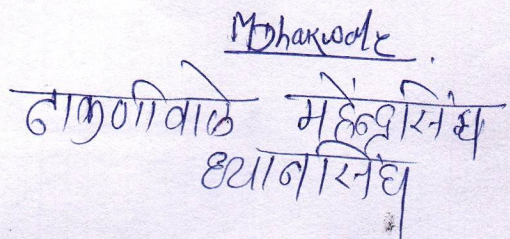 MDhakwale
ढाकणीवाळे महेंन्द्रसिंघ
ध्यानसिंघ